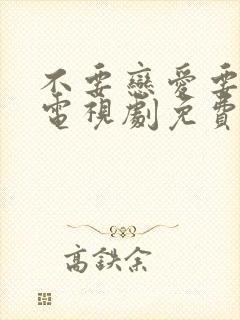 不要戀愛要
電視劇免費
高鉄余